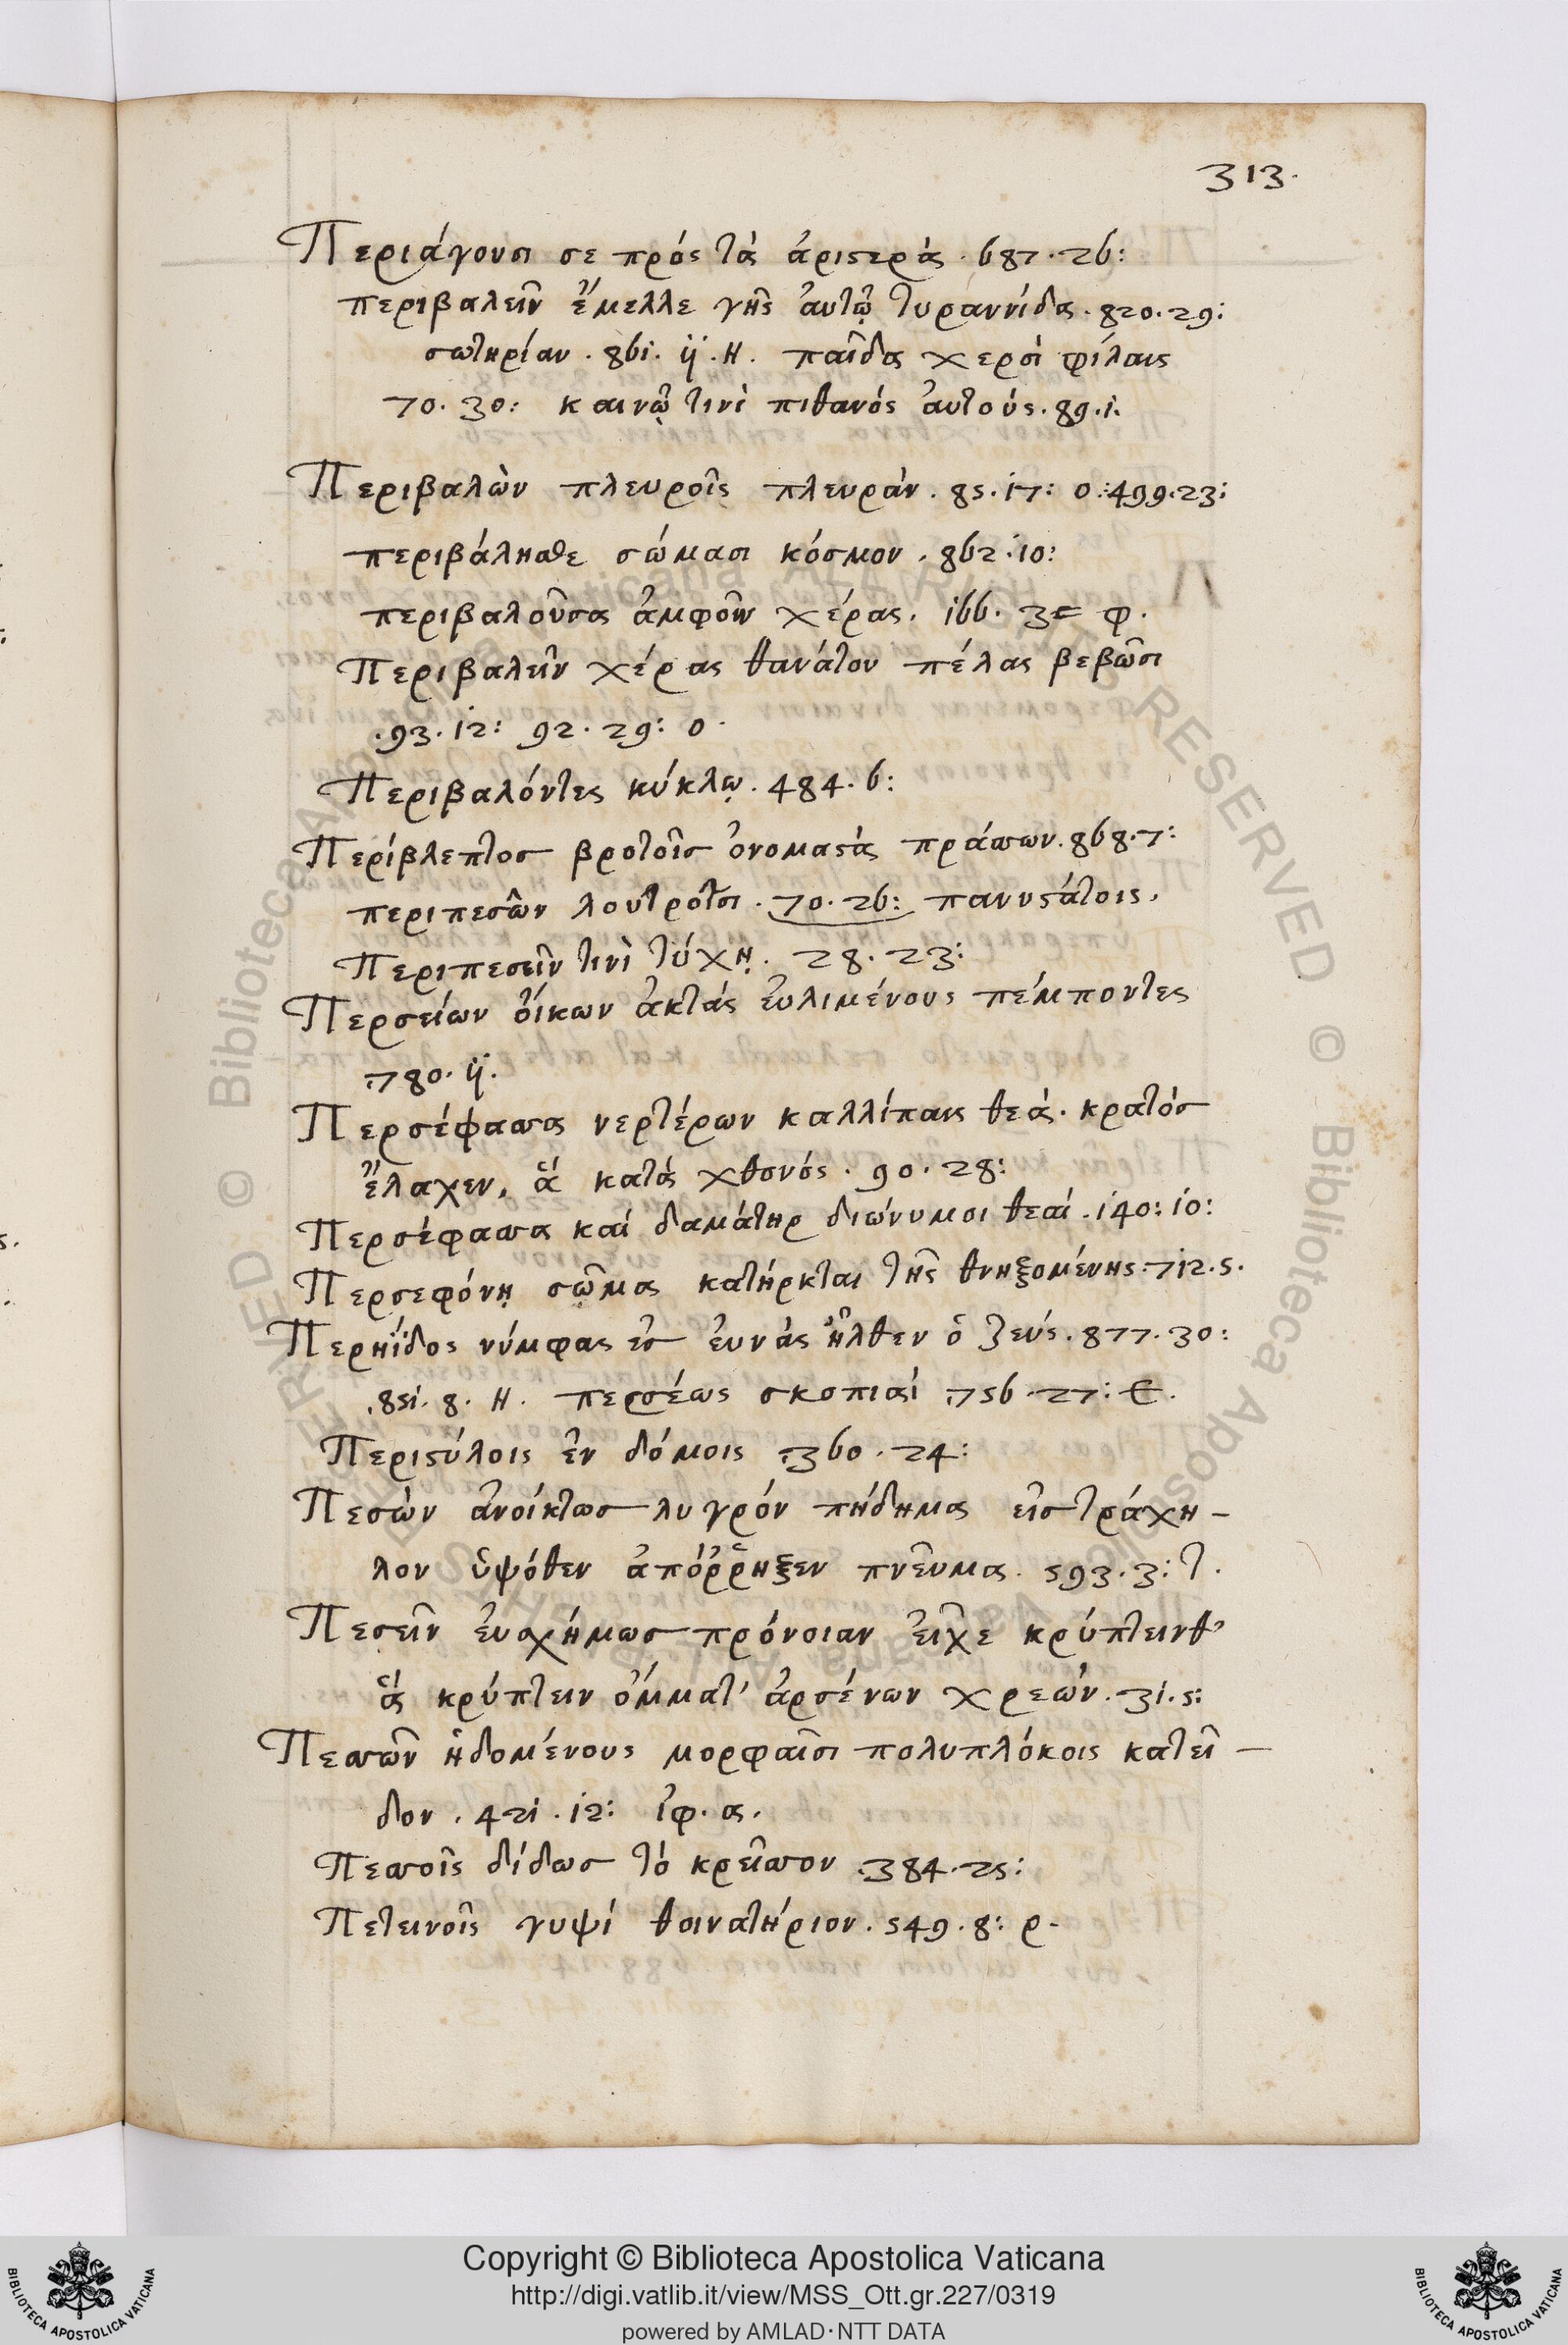 313.
Περιάγουσι σε πρός τὰ ἀριστερὰς. 687. 26:
περιβαλεῖν ἔμελλε γῆς ἀυτῷ τυραννίδα. 820. 29:
σωτηρίαν. 861. ij. H. παῖδα χερσὶ φίλαις
70. 30: καινῷ τινὶ πιθανός ἀυτούς. 89. i.
Περιβαλὼν πλευροῖς πλευρὰν. 85. 17: ο: 499. 23:
περιβάλησθε σώμασι κόσμον. 862. 10:
περιβαλοῦσα ἀμφοῖν χέρας. 166. φ.
Περιβαλεῖν χέρας θανάτου πέλας βεβῶσι
.93. 12: 92. 29: ο.
Περιβαλόντες κύκλῳ. 484. 6:
Περίβλεπτος βροτοῖς ὀνομαστὰς πράσσων. 868. 7:
περιπεσὼν λουτροῖσι. 70. 26: πανυστάτοις.
Περιπεσεῖν τινὶ τύχῃ. 28. 23:
Περσείων ὄικων ἀκτάς ἐυλιμένους πέμποντες
780. ij.
Περσέφασσα νερτέρων καλλίπαις θεά. κρατός
ἔλαχεν, ἅ κατά χθονός. 90. 28:
Περσέφασσα καί δαμάτηρ διώνυμοι θεαί. 140: 10:
Περσεφόνῃ σῶμα κατήρκται τῆς θνηξομένης. 712. 5.
Περηΐδος νύμφας ἐς ἐυνὰς ἦλθεν ὁ Ζεύς. 877. 30:
851. 8. H. περσέως σκοπιαί 756. 27: Є.
Περιστύλοις ἐν δόμοις 360. 24:
Πεσὼν ἀνοίκτως λυγρόν πήδημα εἰς τράχη-
λον ὑψόθεν ἀπόῤῥηξεν πνεῦμα. 593. 3: τ.
Πεσεῖν ἐυσχήμως πρόνοιαν εἶχε κρύπτεινθ'
ἅς κρύπτειν ὄμματ' ἀρσένων χρεών. 31. 5:
Πεσσῶν ἡδομένους μορφαῖσι πολυπλόκοις κατεῖ-
δον. 421. 12: ἰφ. α.
Πεσσοῖς δίδως τό κρεῖσσον 384. 25:
Πετεινοῖς γυψί θοινατήριον. 549. 8: ρ.
Copyright © Biblioteca Apostolica Vaticana
http://digi.vatlib.it/view/MSS_Ott.gr.227/0319
powered by AMLAD·NTT DATA